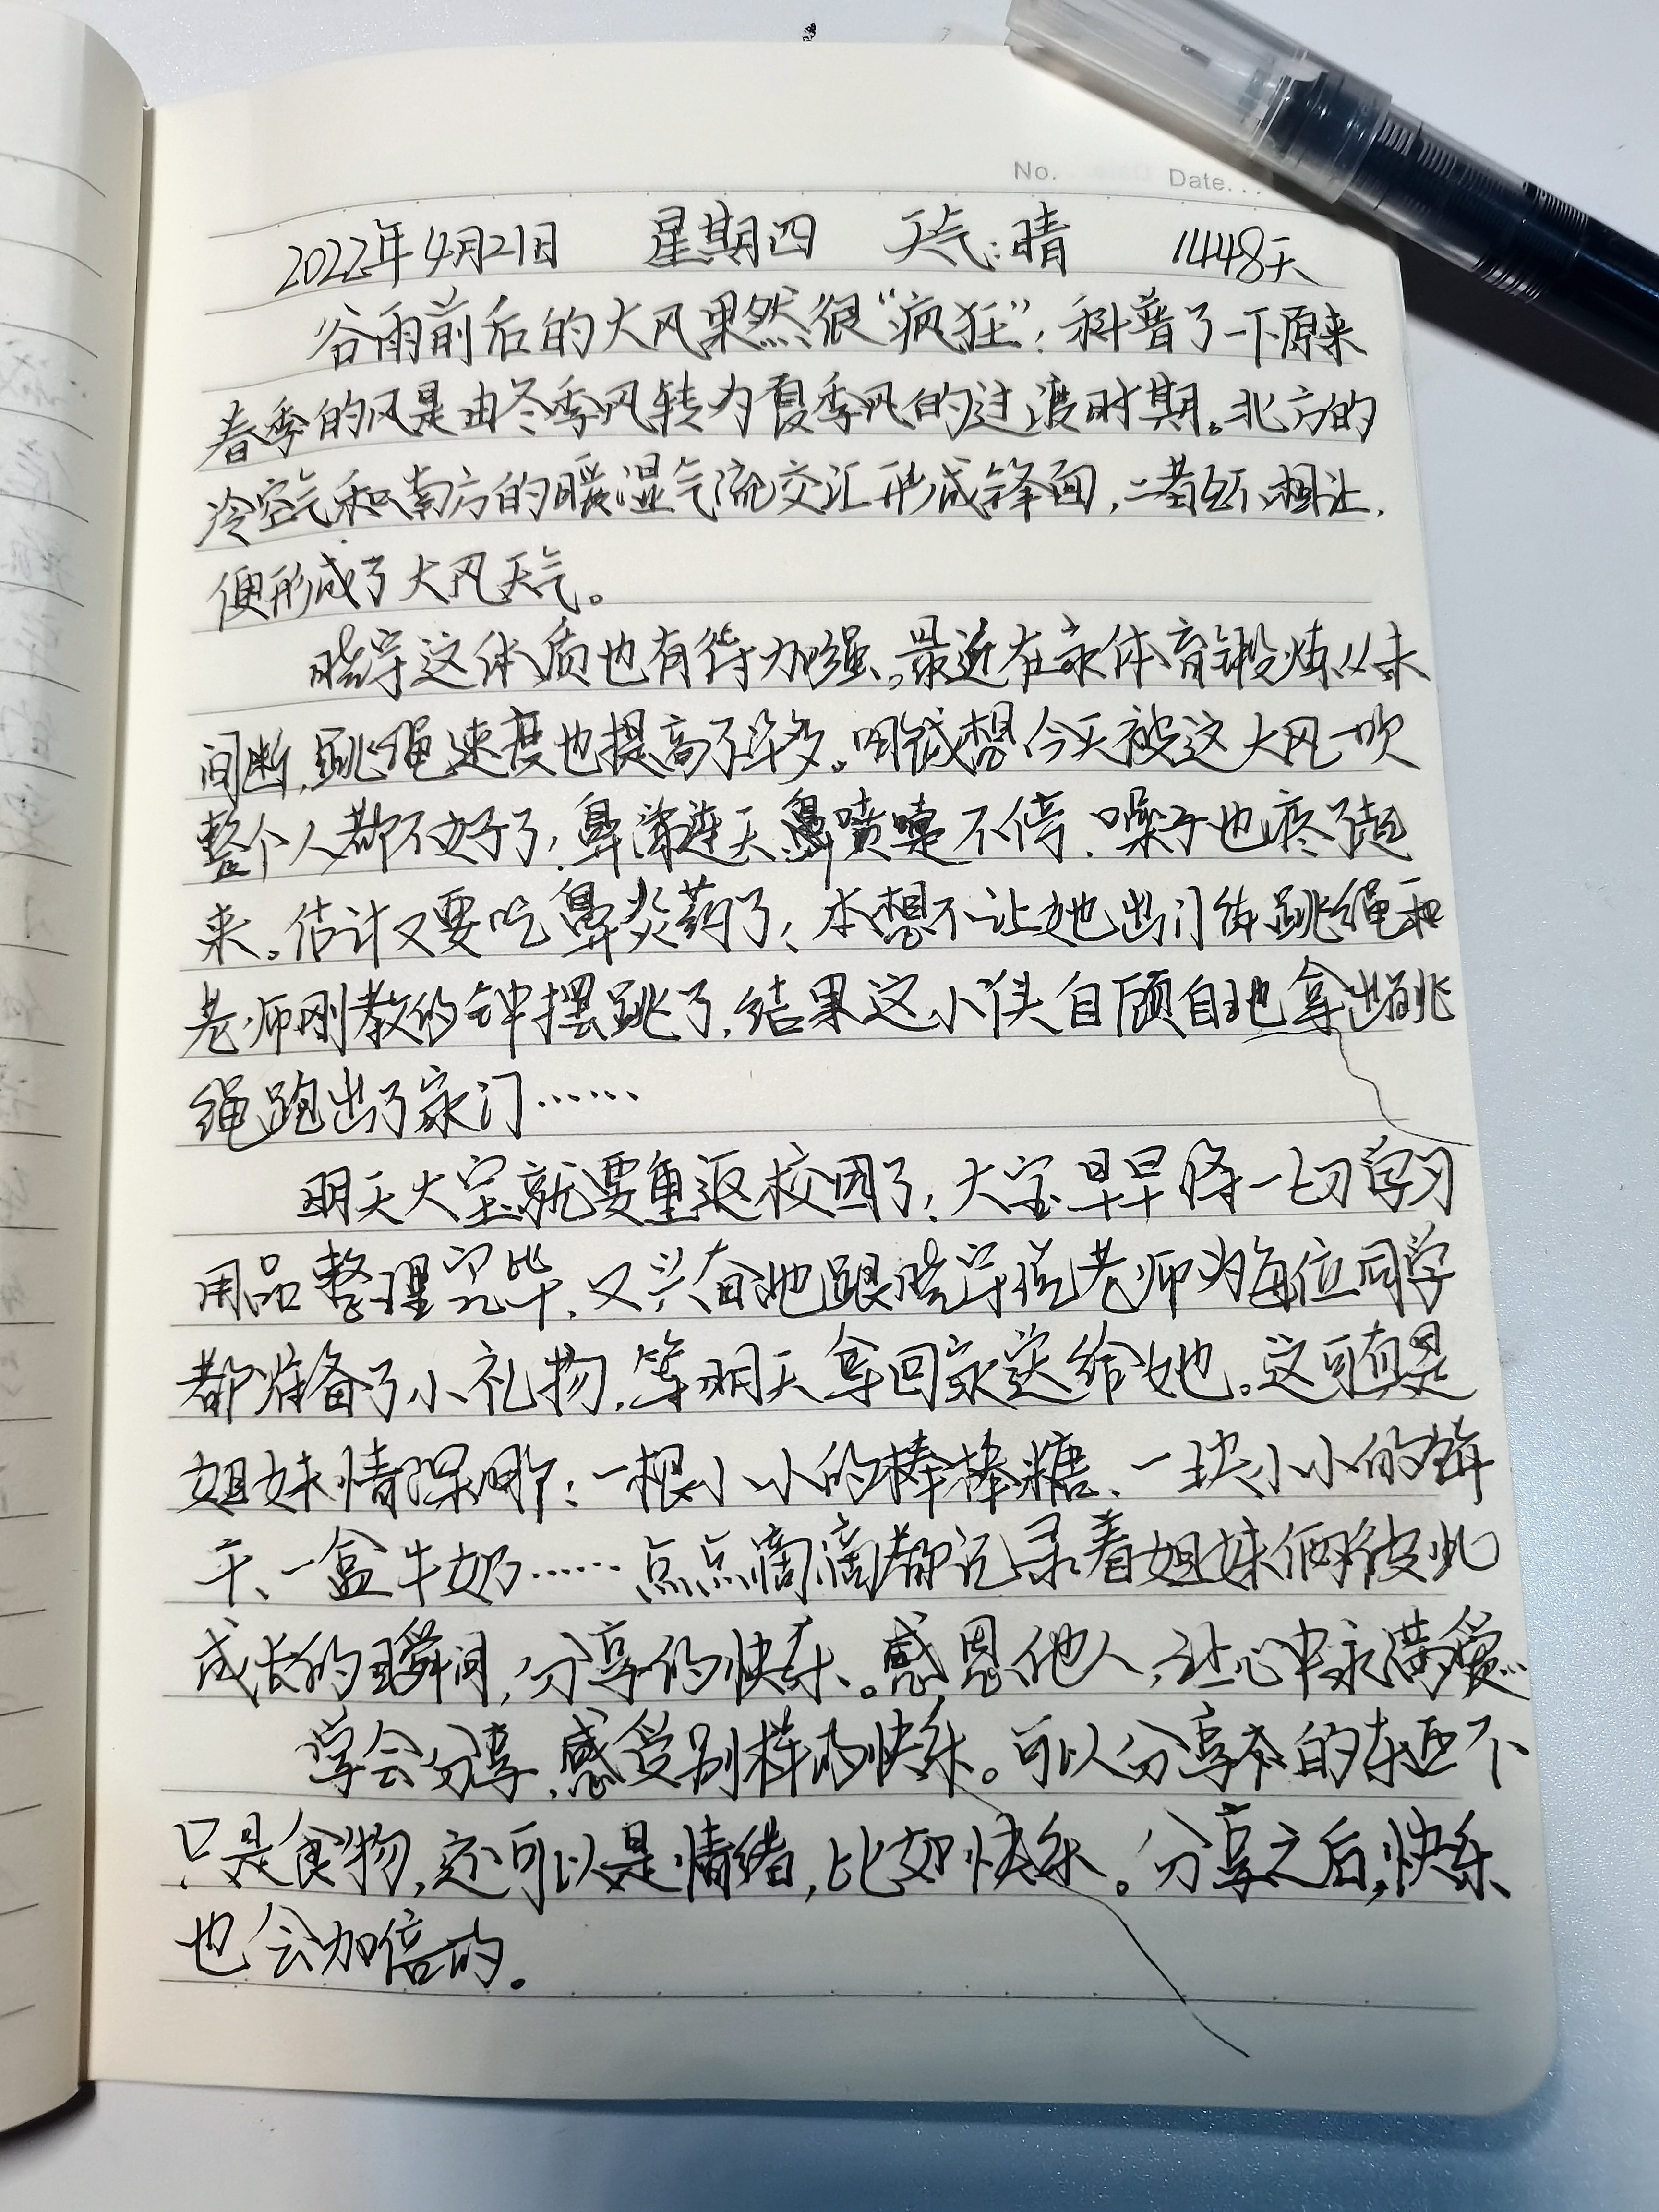 No. Date...
2022年4月21日 星期四 天气:晴 1448天
谷雨前后的大风果然很“疯狂”;科普了一下原来
春季的风是由冬季风转为夏季风的过渡时期。北方的
冷空气和南方的暖湿气流交汇形成锋面,二者互不相让,
便形成了大风天气。
晓宇这体质也有待加强。最近在家体育锻炼从未
间断,跳绳速度也提高了许多。哪成想今天被这大风一吹
整个人都不好了,鼻涕连天,鼻喷嚏不停、嗓子也疼了起
来。估计又要吃鼻炎药了,本想不让她出门练跳绳和
老师刚教的钟摆跳了,结果这小丫头自顾自地拿出跳
绳跑出了家门……
明天大宝就要重返校园了,大宝早早将一切学习
用品整理完毕,又兴奋地跟晓宇说老师为每位同学
都准备了小礼物,等明天拿回家送给她。这可真是
姐妹情深哪:一根小小的棒棒糖、一块小小的饼
干、一盒牛奶……点点滴滴都记录着姐妹俩彼此
成长的瞬间,分享的快乐。感恩他人,让心中永满爱…
学会分享,感受别样的快乐。可以分享的东西不
只是食物,还可以是情绪,比如快乐。分享之后,快乐
也会加倍的。